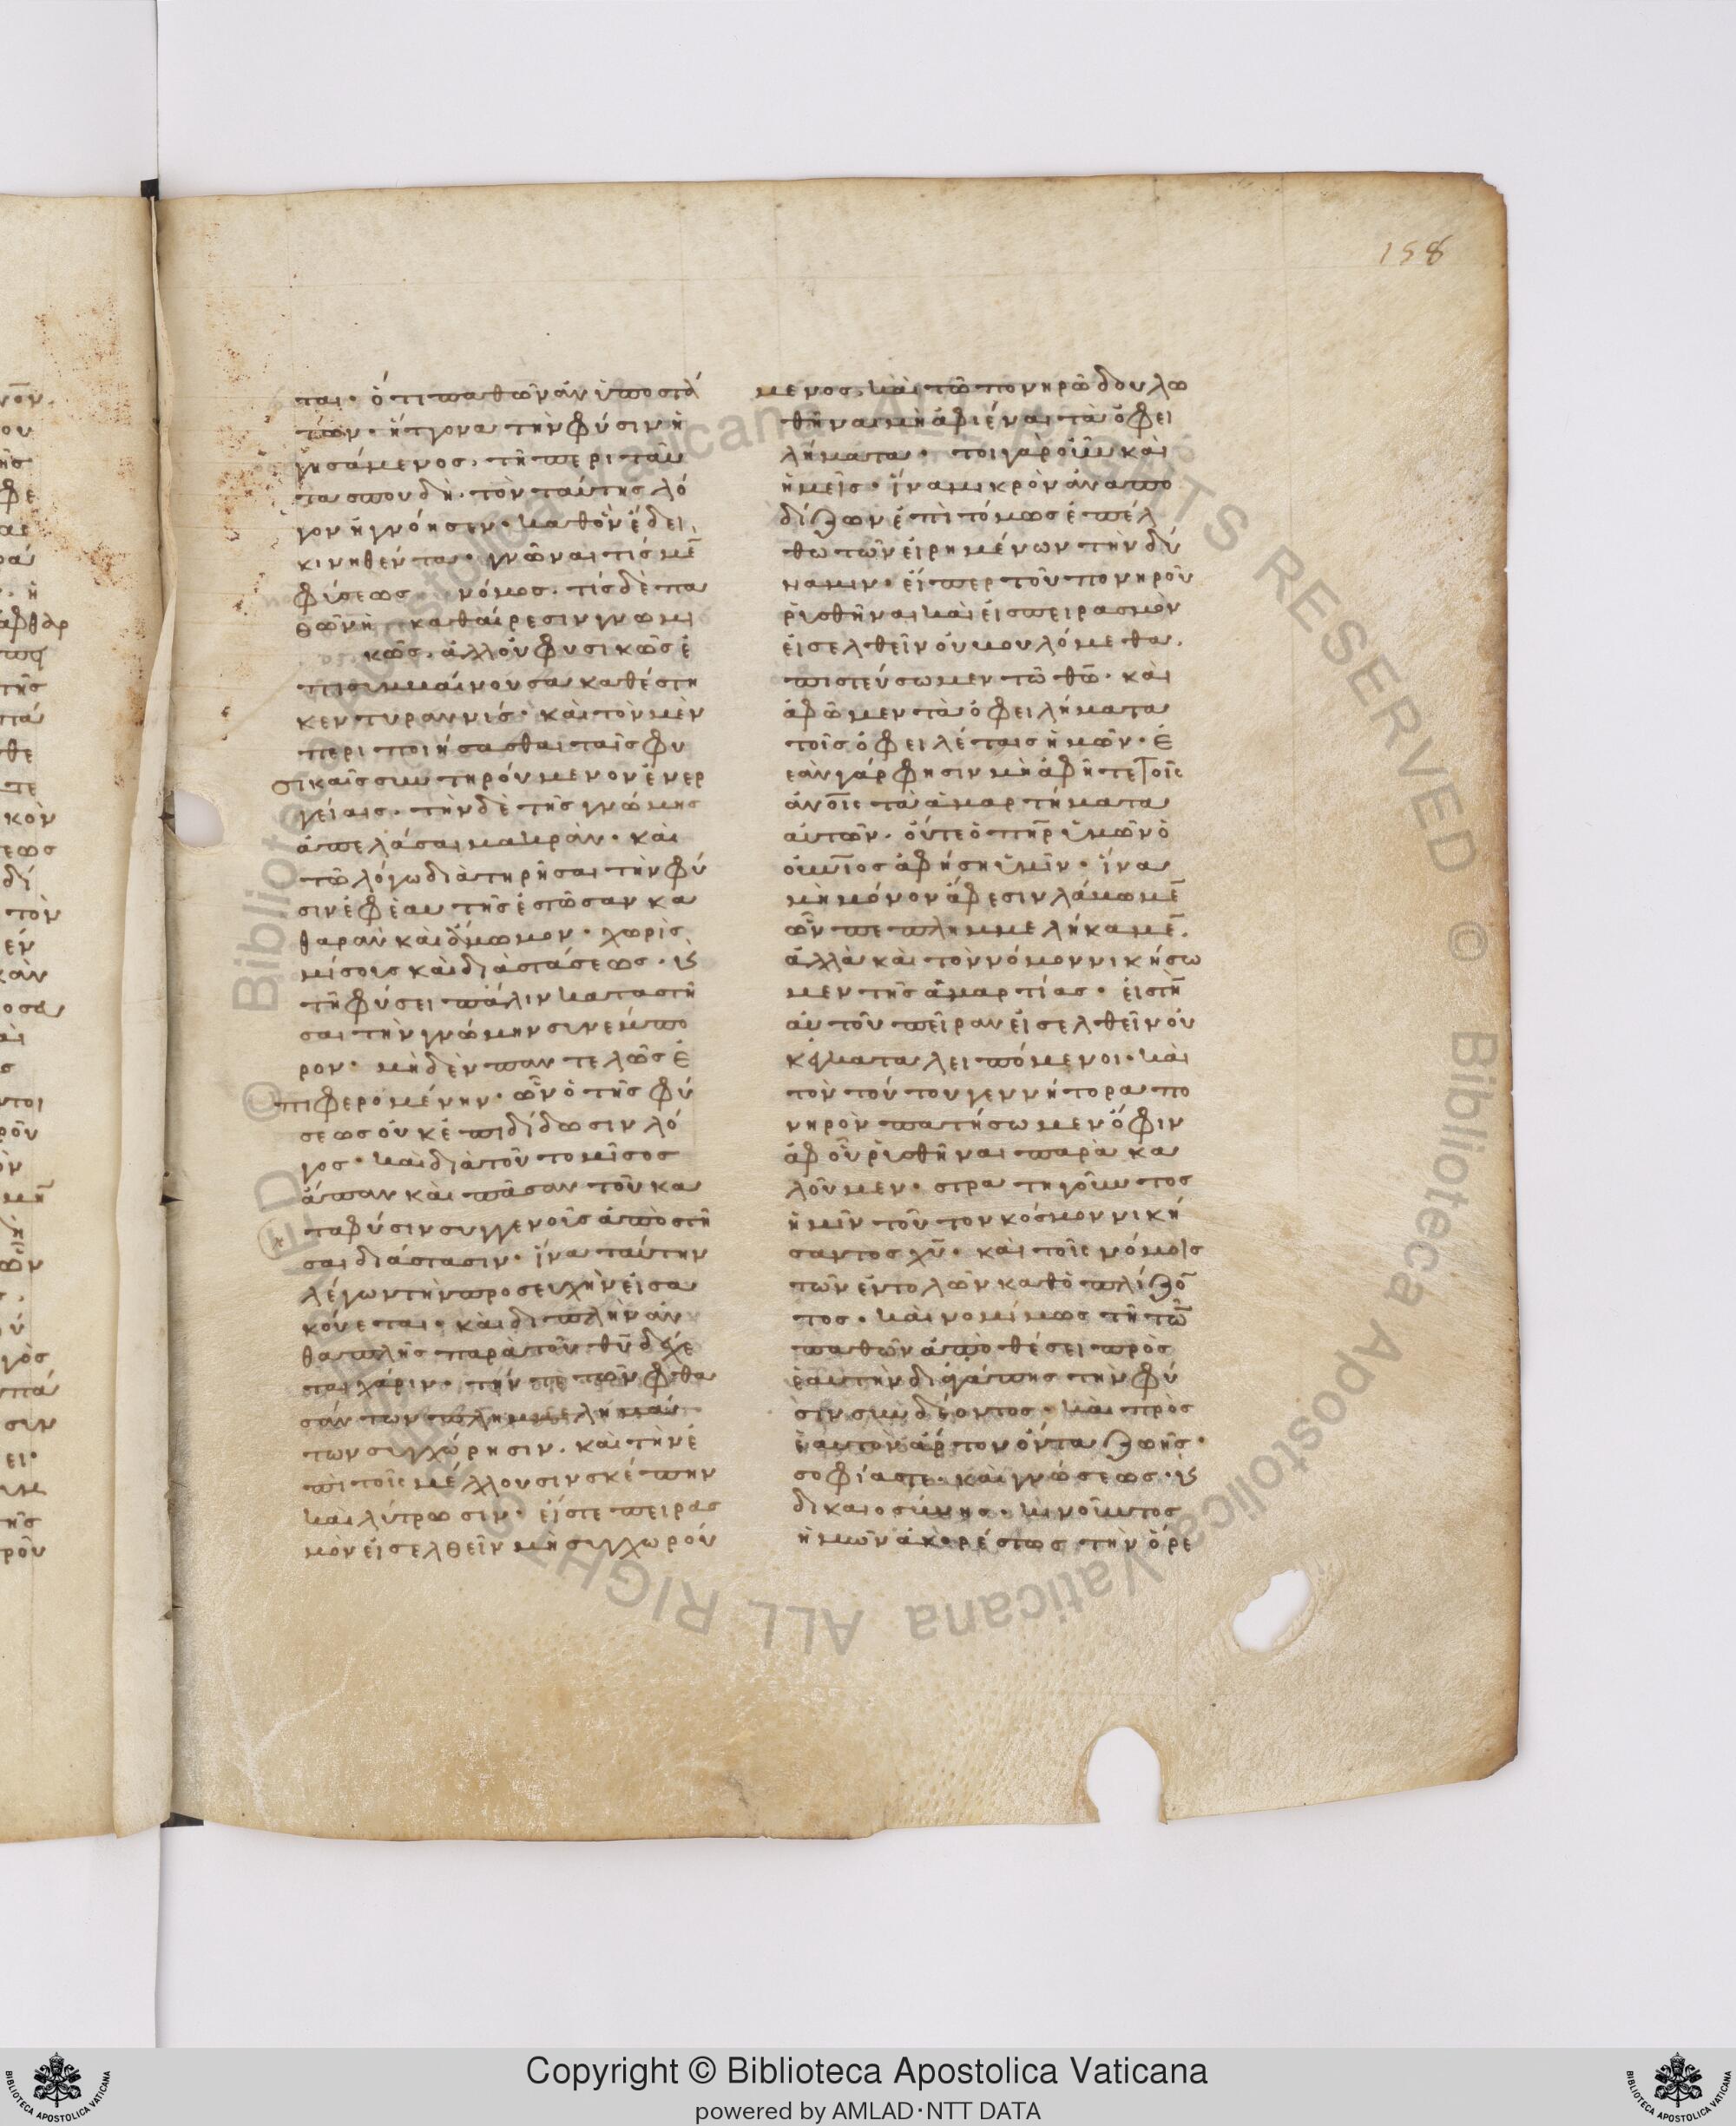 158
ται· ὅτι παθῶν ἀνυποστά
των· ἥττονα τὴν φύσιν ἡ
γησάμενος, τῇ περὶ ταῦ
τα σπουδῇ· τὸν ταύτης λό
γον ἠγνόησεν· καθ' ὃν ἔδει
κινηθέντα· γνῶναι τίς μ(ὲν)
φύσεως νόμος· τίς δὲ πα
θῶν ἡ καθαίρεσιν γνωμι
κῶς· ἀλλ' οὐ φυσικῶς ἐ
πισυμβαίνουσα καθέστη
κεν τυραννίς· καὶ τὸν μὲν
περιποιήσασθαι ταῖς φυ
σικαῖς συντηρούμενον ἐνερ
γείαις· τὴν δὲ τῆς γνώμης
ἀπελάσαι μακράν· καὶ
τῶ λόγω διατηρῆσαι τὴν φύ
σιν ἐφ' ἑαυτῆς ἑστῶσαν κα
θαρὰν καὶ ἄμωμον· χωρὶς
μίσους καὶ διαστάσεως· κ(αὶ)
τῇ φύσει πάλιν καταστῆ
σαι τὴν γνώμην συνέμπο
ρον· μηδὲν παντελῶς ἐ
πιφερομένην· ὧν ὁ τῆς φύ
σεως οὐκ ἐπιδίδωσιν λό
γος· καὶ διὰ τοῦτο μῖσος
ἅπαν καὶ πᾶσαν τοῦ κα
τὰ φύσιν συγγενοῦς ἀποστῆ
σαι διάστασιν· ἵνα ταύτην
λέγων τὴν προσευχὴν εἰσα
κούεται· καὶ διπλὴν ἀν
θ' ἁπλῆς παρὰ τοῦ θῦ δέχε
ται χάριν· τήν τε τῶν φθα
σάντων πλημμελημά
των συγχώρησιν· καὶ τὴν ἐ
πὶ τοῖς μέλλουσιν σκέπην
καὶ λύτρωσιν· εἴς τε πειρασ
μὸν εἰσελθεῖν μὴ συγχωρού
μενος, καὶ τῶ πονηρῶ δουλω
θῆναι μὴ ἀφιέναι τὰ ὀφει
λήματα· τοιγαροῦν καὶ
ἡμεῖς· ἵνα μικρὸν ἀναπο
δίζων ἐπιτόμως ἐπέλ
θω τῶν εἰρημένων τὴν δύ
ναμιν· εἴπερ τοῦ πονηροῦ
ῥυσθῆναι καὶ εἰς πειρασμὸν
εἰσελθεῖν οὐ βουλόμεθα·
πιστεύσωμεν τῶ θῶ· καὶ
ἀφῶμεν τὰ ὀφειλήματα
τοῖς ὀφειλέταις ἡμῶν· ἐ
ὰν γάρ φησιν μὴ ἀφῆτε τοῖς
ἀνοις τὰ ἁμαρτήματα
αὐτῶν· οὔτε ὁ πηρ ὑμῶν ὁ
οὐνιος ἀφήσῃ ὑμῖν· ἵνα
μὴ μόνον ἄφεσιν λάβωμε(ν)
ὧν πεπλημμελήκαμε(ν)·
ἀλλὰ καὶ τὸν νόμον νικήσω
μεν τῆς ἁμαρτίας· εἰς τὴ(ν)
αὐτοῦ πεῖραν εἰσελθεῖν οὐ
κ' ἐγκαταλειπόμενοι· καὶ
τὸν τούτου γεννήτορα πο
νηρὸν πατήσωμεν ὄφιν
ἀφ' οὗ ῥυσθῆναι παρακα
λοῦμεν· στρατηγοῦντος
ἡμῖν τοῦ τὸν κόσμον νική
σαντος χῦ· καὶ τοῖς νόμοις
τῶν ἐντολῶν καθοπλίζο(ν)
τος· καὶ νομίμως τῇ τῶν
παθῶν ἀποθέσει πρὸς
ἑαυτὴν δι' ἀγάπης τὴν φύ
σιν συνδέοντος· καὶ πρὸς
ἑαυτὸν ἄρτον ὄντα ζωῆς·
σοφίας τε· καὶ γνώσεως· κ(αὶ)
δικαιοσύνης· κινοῦντος
ἡμῶν ἀκορέστως τὴν ὄρε
Copyright © Biblioteca Apostolica Vaticana
powered by AMLAD·NTT DATA